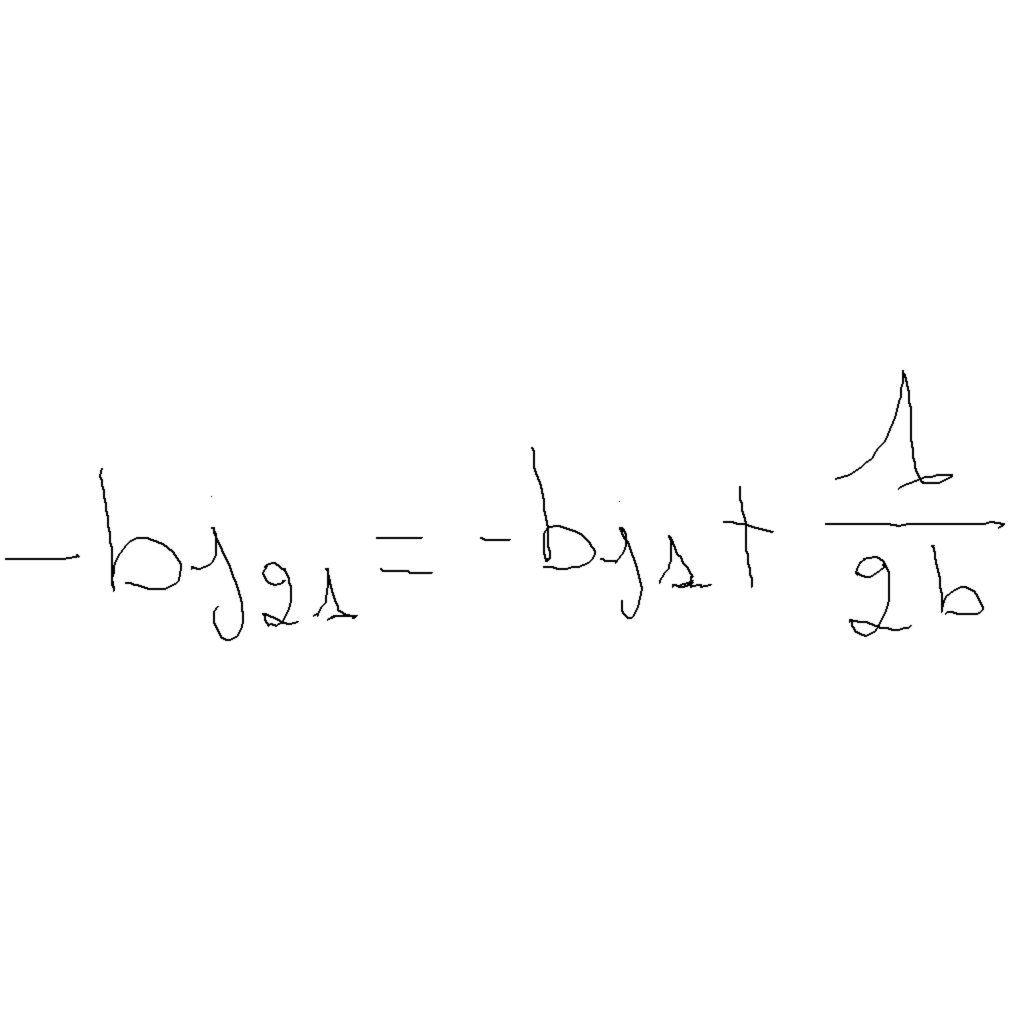 $-by_{21} = -by_1 + \frac{1}{2b}$